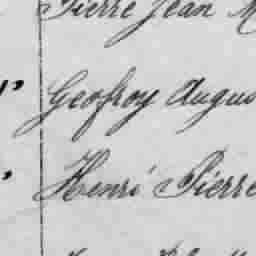 Pierre Jean M
Geofroy Augus
Henri Pierre